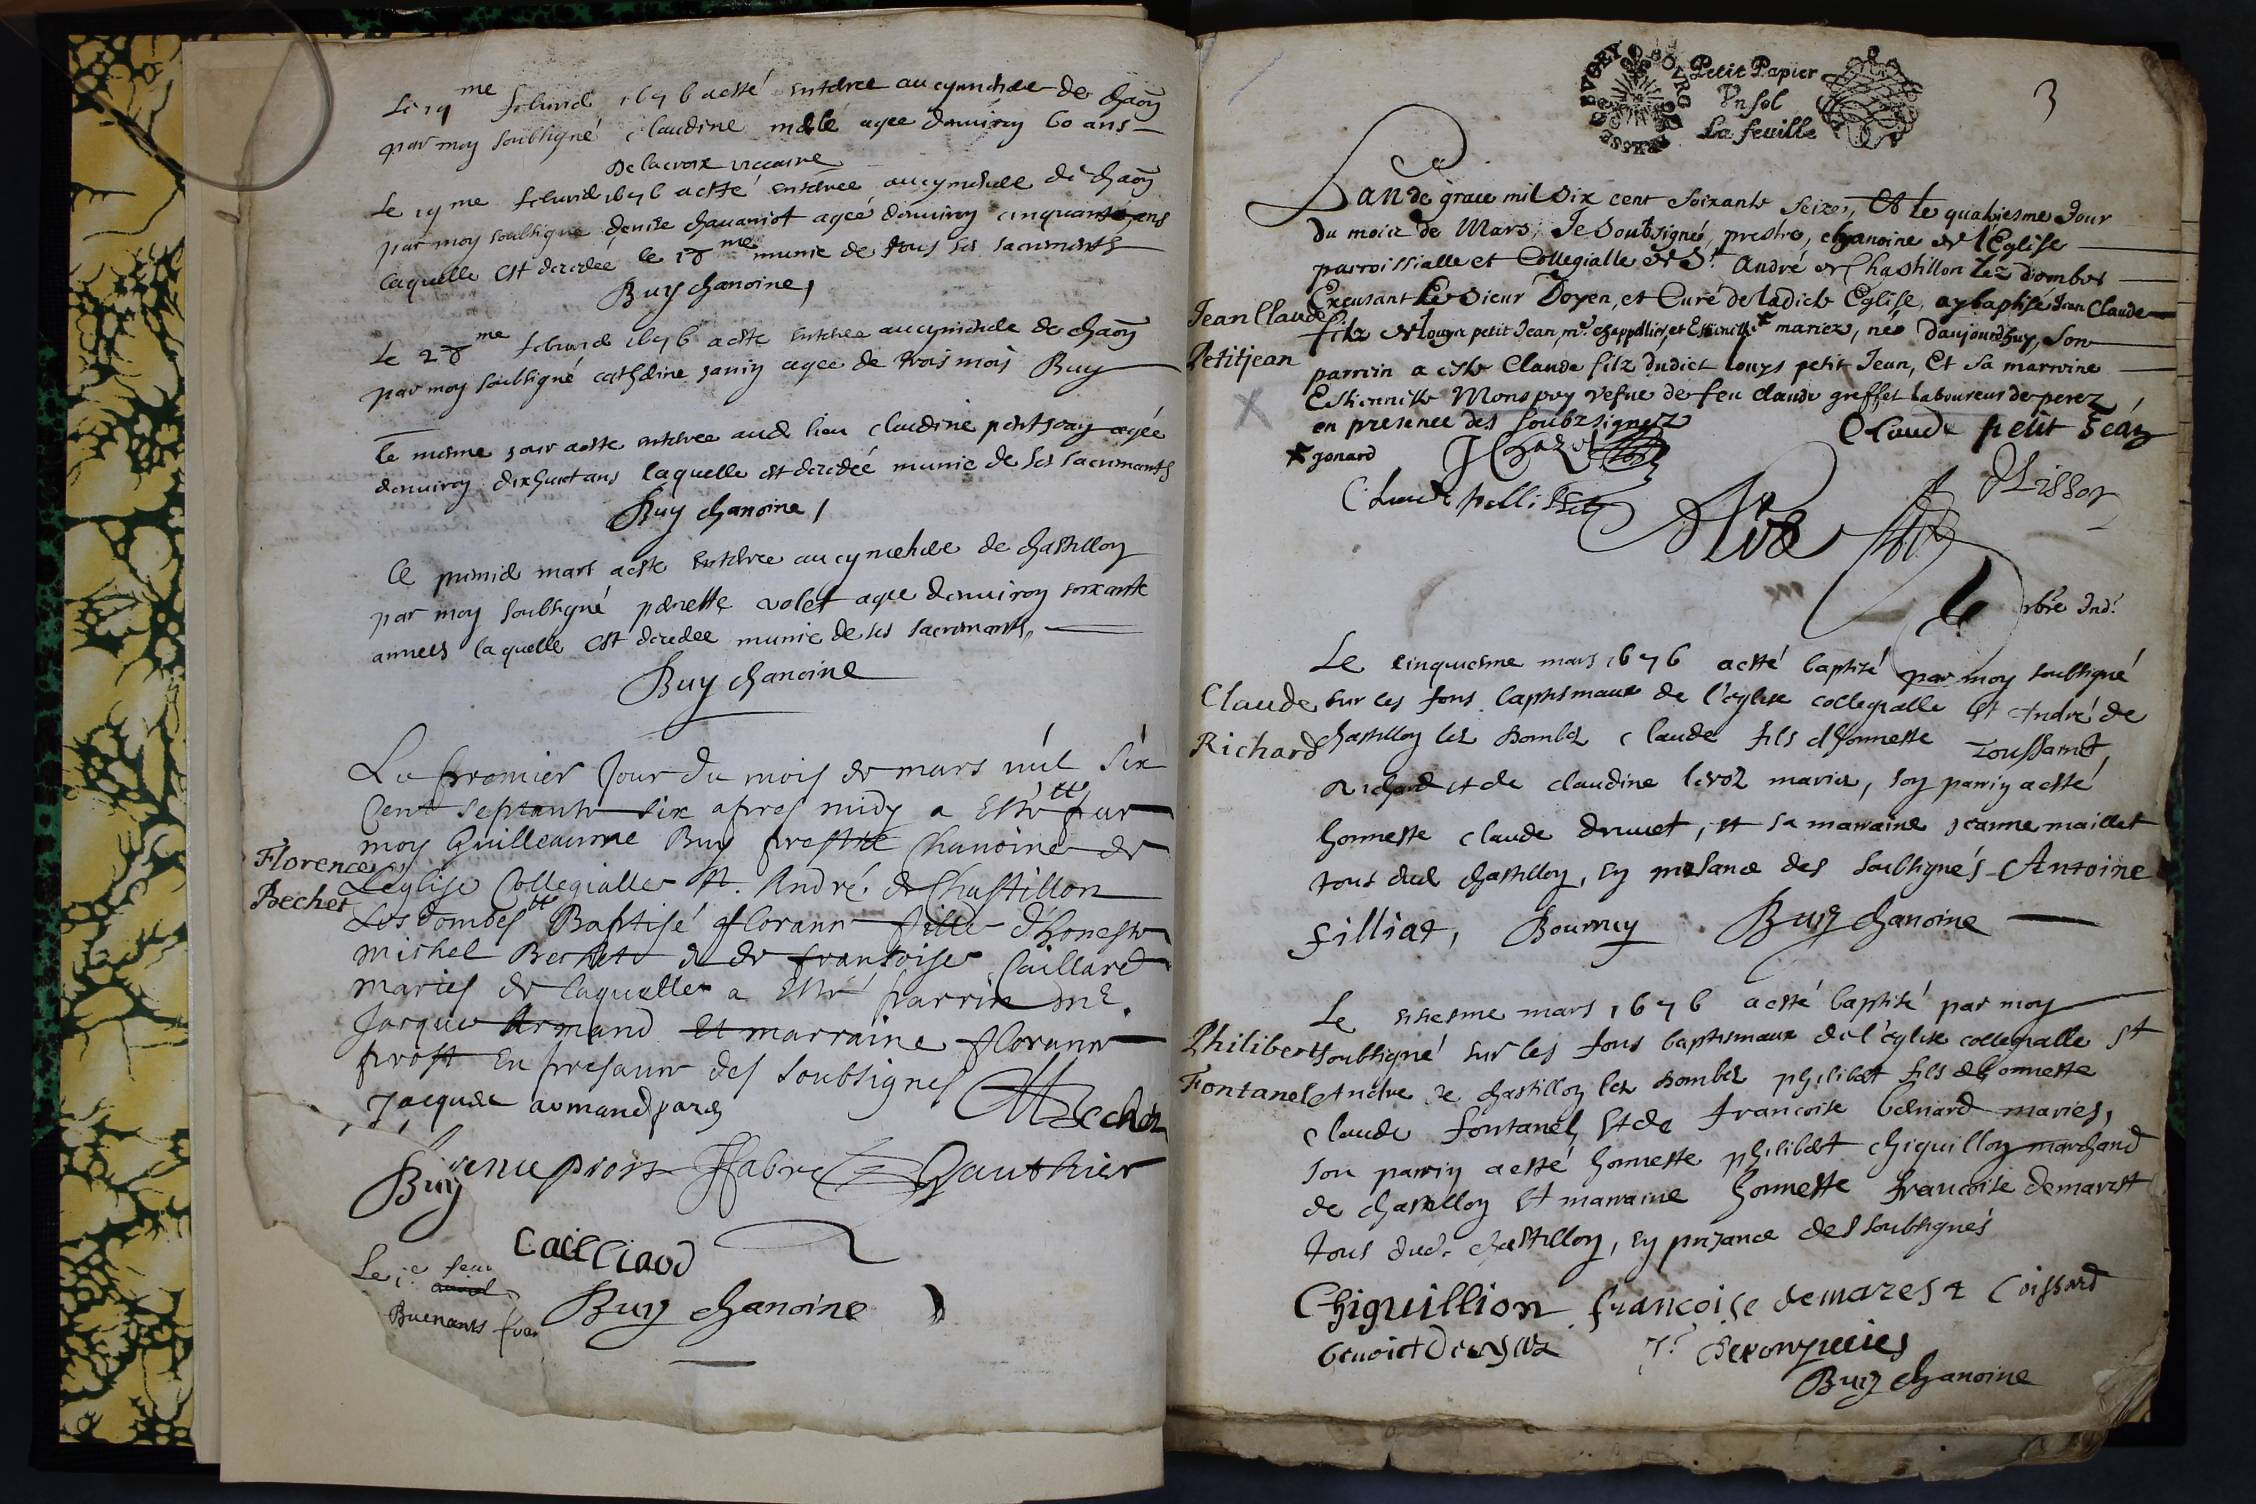 Le 19me febvrié 1676 a esté enterree au cymetiere de chaõn
par moy soubsigné claudine melé agee denviron 60 ans
Delacroix viccaire
Le 19me febvrié 1676 a esté enterree au cymetiere de chaõn
par moy soubsigné denise chavaniot ageé denviron cinquante ans
laquelle est decedeé le 18me munie de tous ses sacrements
Buy chanoine
Le 28me febvrié 1676 a esté enterree au cymetiere de chaõn
par moy soubsigné catherine agee de trois mois Buy
Le mesme jour a esté enterree aud lieu claudine petitjean agée
denviron dixhuict ans laquelle est decedeé munie de ses sacremants
Buy chanoine
Ce premié mars a esté enterree au cymetiere de chastillon
par moy soubsigné perrette volet agee denviron soixante
annees laquelle est decedee munie de ses sacremants
Buy chanoine
Le premier Jour du mois de mars mil six
Cent septante six apres midy a esté par
moy Guilleaume Buy prestre Chanoine de
Florence
Leglise Collegialle St. André de Chastillon
Bechet
Les dombes Baptisé florance fille d'honeste
michel Bechet & de francoise Caillard
mariés de laquelle a esté parrin mr.
Jacque Armand Et marraine florance
prost En presance des soubsignes
Jacque armand parrin MBechet
Buy Fabre Gauthier
Cailliaud
Le
Buenans
Buy chanoine
Petit Papier
Vn sol
La feuille
3
Lan de grace mil six cent soixante seize, Et le quatriesme Jour
du mois de Mars, Je Soubsigné prestre, chanoine de l'Eglise
parroissialle et Collegialle de St. André de Chastillon lez dombes
Excusant Le Sieur Doyen, et Curé de ladicte Eglise, ay baptisé Jean Claude
Jean Claude
filz de Louys petit Jean, mr. chappellier, et Estiennette* mariez, né daujourdhuy, Son
Petitjean
parrin a esté Claude filz dudict Louys petit Jean, Et sa marrine
Estiennette Monspey vefve de feu claude greffet Laboureur de perez
en presence des soubsignez
* gonard
Claude petit Jean
Claude pellisset
Le cinquiesme mars 1676 a esté baptizé par moy soubsigné
Claude
sur les fons baptismaux de l'eglise collegialle st André de
Richard
chastillon les Dombes claude fils d'honneste Toussainct
Richard et de claudine levol mariez, son parrin a esté
honneste claude druuet, et sa marraine jeanne maillet
tous dud chastillon, en presance des soubsignés Antoine
filliat, Buy chanoine
Le sixiesme mars 1676 a esté baptisé par moy
Philibert
soubsigné sur les fons baptismaux de l'eglise collegialle st
Fontanel
Andre de chastillon les Dombes philibert fils d'honneste
claude fontanel, et de francoise bernard mariés,
son parrin a esté honneste philibert chiquillon marchand
de chastillon et marraine honneste francoise demarest
tous dud. chastillon, en presance des soubsignés
Chiquillion francoise demarest Coissard
benoict
Buy chanoine